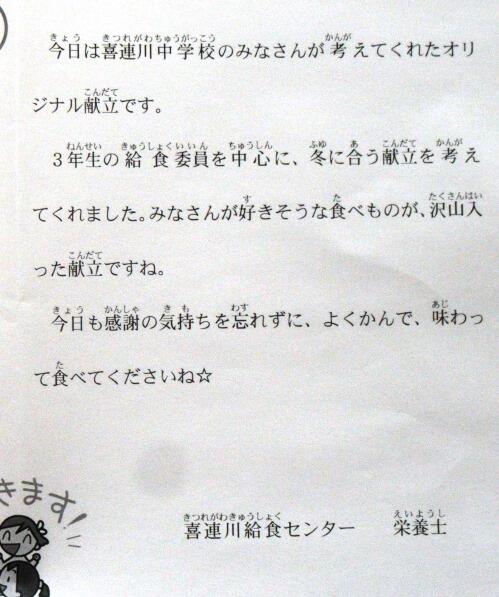 今日は喜連川中学校のみなさんが考えてくれたオリ
ジナル献立です。
3年生の給食委員を中心に、冬に合う献立を考え
てくれました。みなさんが好きそうな食べものが、沢山入
った献立ですね。
今日も感謝の気持ちを忘れずに、よくかんで、味わっ
て食べてくださいね☆
きます!
喜連川給食センター 栄養士